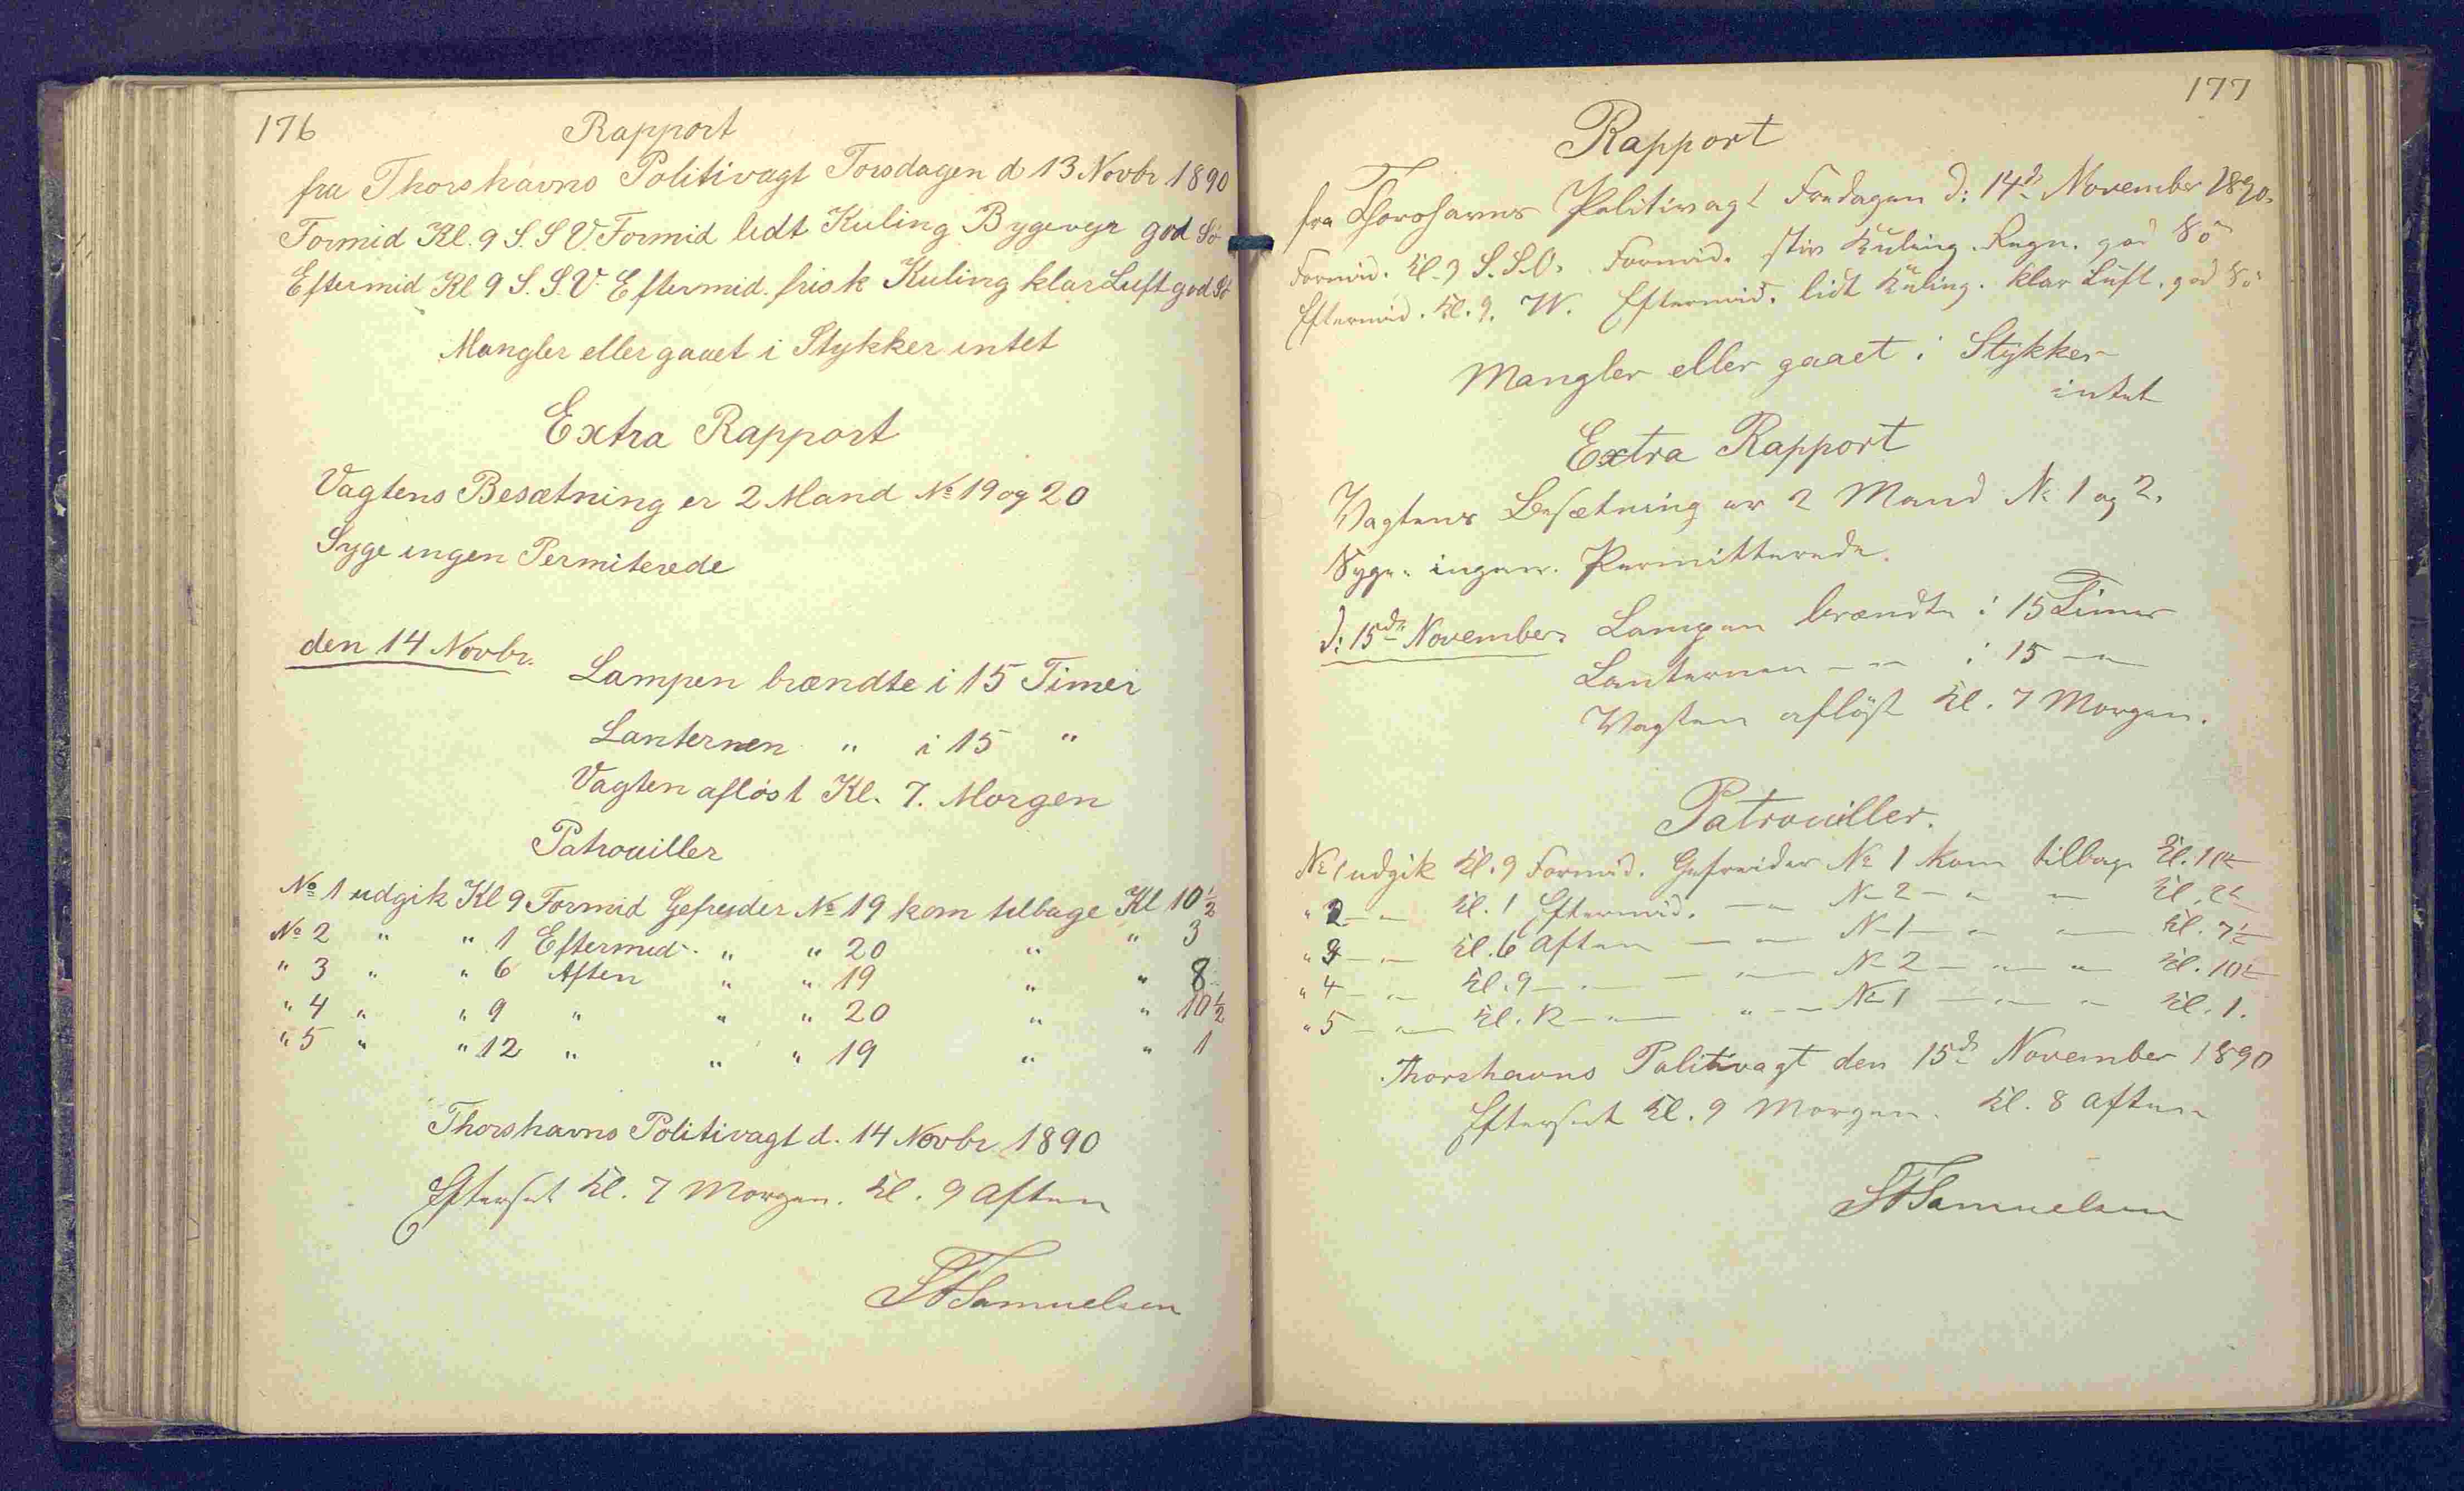 176
Rapport
fra Thorshavns Politivagt Torsdagen d 13 Novbr 1890
Formid Kl. 9 S. S V. Formid lidt Kuling Bygevejr god Sø
Eftermid Kl 9 S. S. V. Eftermid. frisk Kuling klar Luft god Sø
Mangler eller gaaet i Stykker intet
Extra Rapport
Vagtens Besætning er 2 Mand No 19 og 20
Syge ingen Permiterede
den 14 Novbr.
Lampen brændte i 15 Timer
Lanternen " i 15 "
Vagten afløst Kl. 7. Morgen
Patrouiller
No 1 udgik Kl 9 Formid Gefreider No 19 kom tilbage Kl 10 1/2
No 2 " " 1 Eftermid. " " 20 " " 3
" 3 " " 6 Aften " " 19 " " 8
" 4 " " 9 " " " 20 " " 10 1/2
" 5 " " 12 " " " 19 " " 1
Thorshavns Politivagt d. 14 Novbr 1890
Efterset Kl. 7 Morgen. Kl. 9 Aften
Samuelsen
177
Rapport
fra Thorshavns Politivagt Fredagen d: 14d November 1890.
Formid. Kl. 9 S. S. O. Formid. stiv Kuling. Regn. god Sö
Eftermid. Kl. 9. W. Eftermid. lidt Kuling. klar Luft. god Sö
Mangler eller gaaet i Stykker
intet
Extra Rapport
Vagtens Besætning er 2 Mand No 1 og 2.
Syge. ingen. Permitterede.
d: 15de November. Lampen brændte i 15 Timer
Lanternen — " — i 15 — " —
Vagten aflöst Kl. 7 Morgen.
Patrouiller.
No 1 udgik Kl. 9 Formid. Gefreider No 1 kom tilbage Kl. 10 1/2
" 2 — " — Kl. 1 Eftermid. — " — No 2 — " — " — Kl. 2 1/2
" 3 — " — Kl. 6 Aften — " — No 1 — " — " — Kl. 7 1/2
" 4 — " — Kl. 9 — " — — " — No 2 — " — " — Kl. 10 1/2
" 5 — " — Kl. 12 — " — " — No 1 — " — " — Kl. 1.
Thorshavns Politivagt den 15d November 1890
Efterset Kl. 9 Morgen. Kl. 8 Aften
Samuelsen